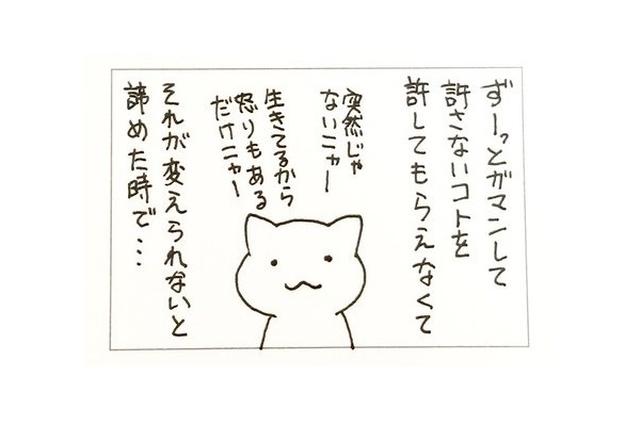 ずーっとガマンして
許さないコトを
許してもらえなくて
突然じゃ
ないニャー
生きてるから
怒りもある
だけニャー
それが変えられないと
諦めた時で・・・